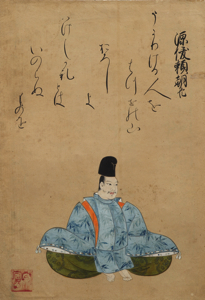 源俊頼朝臣
うかりける人を
はつせの山
おろし
よ
はけしかれとは
いのらぬ
ものを